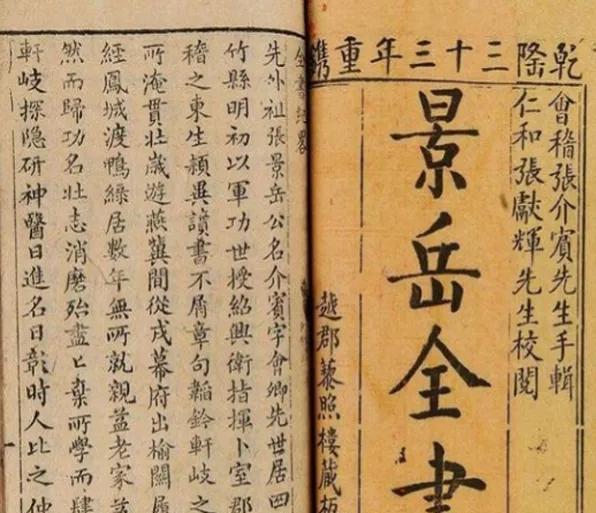 乾隆三十三年重鐫
會稽張介賓先生手輯
仁和張獻輝先生校閱
景岳全書
越郡藜照樓藏板
全書紀略
先外祖張景岳公名介賓字會卿先世居四
竹縣明初以軍功世授紹興衛指揮卜室郡
稽之東生穎異讀書不屑章句韜鈐軒岐之
所淹貫壯歲遊燕冀間從戎幕府出榆關履
經鳳城渡鴨綠居數年無所就親益老家益
然而歸功名壯志消磨殆盡匕棄所學而肆
軒岐探隐研神醫日進名日彰時人比之仲